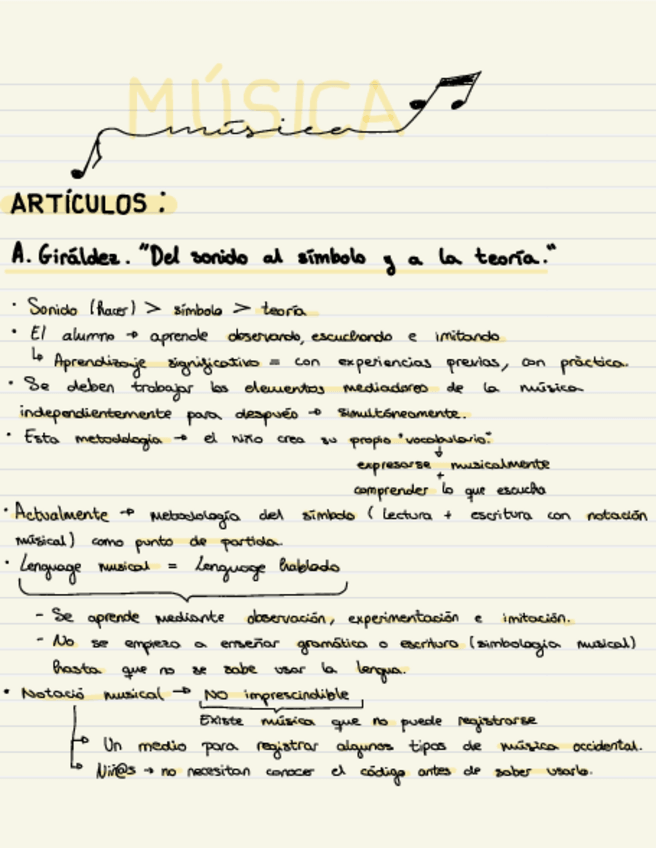 MÚSICA
música
ARTÍCULOS :
A. Giráldez. "Del sonido al símbolo y a la teoría."
· Sonido (hacer) > símbolo > teoría
· El alumno → aprende observando, escuchando e imitando
↳ Aprendizaje significativo = con experiencias previas, con pràctica.
· Se deben trabajar los elementos mediadores de la música
independientemente para después → simultáneamente.
· Esta metodología → el niño crea su propio "vocabulario".
↓
expresarse musicalmente
+
comprender lo que escucha
· Actualmente → metodología del símbolo ( lectura + escritura con notación
músical) como punto de partida.
· Lenguage musical = Lenguage hablado
- Se aprende mediante observación, experimentación e imitación.
- No se empieza a enseñar gramática o escritura (simbología musical)
hasta que no se sabe usar la lengua.
· Notació musical → NO imprescindible
Existe música que no puede registrarse
→ Un medio para registrar algunos tipos de música occidental.
↳ Niñ@s → no necesitan conocer el código antes de saber usarlo.